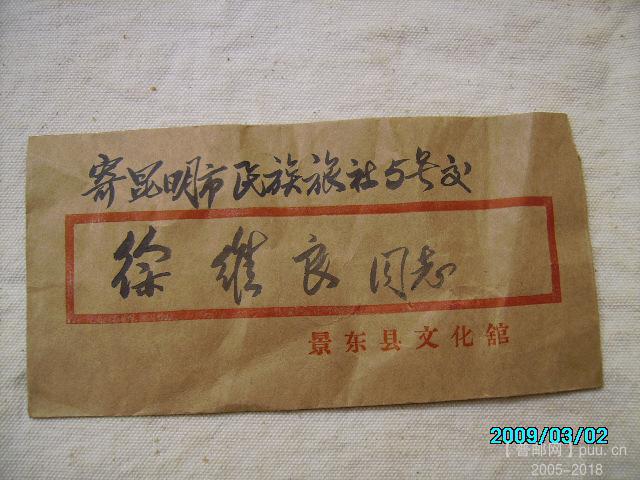 寄昆明市民族旅社5号交
徐维良同志
景东县文化舘
2009/03/02
【普邮网】puu.cn
2005-2018